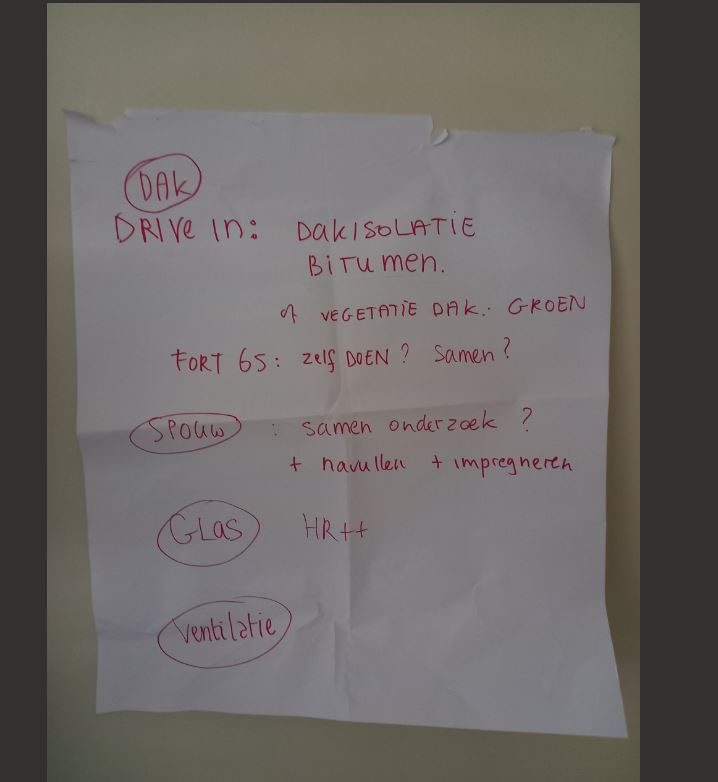 DAK
DRIVE IN: DAKISOLATIE
BITUMEN.
of VEGETATIE DAK.. GROEN
FORT 65: zelf DOEN? Samen?
SPOUW : samen onderzoek ?
+ navullen + impregneren
GLAS HR++
Ventilatie